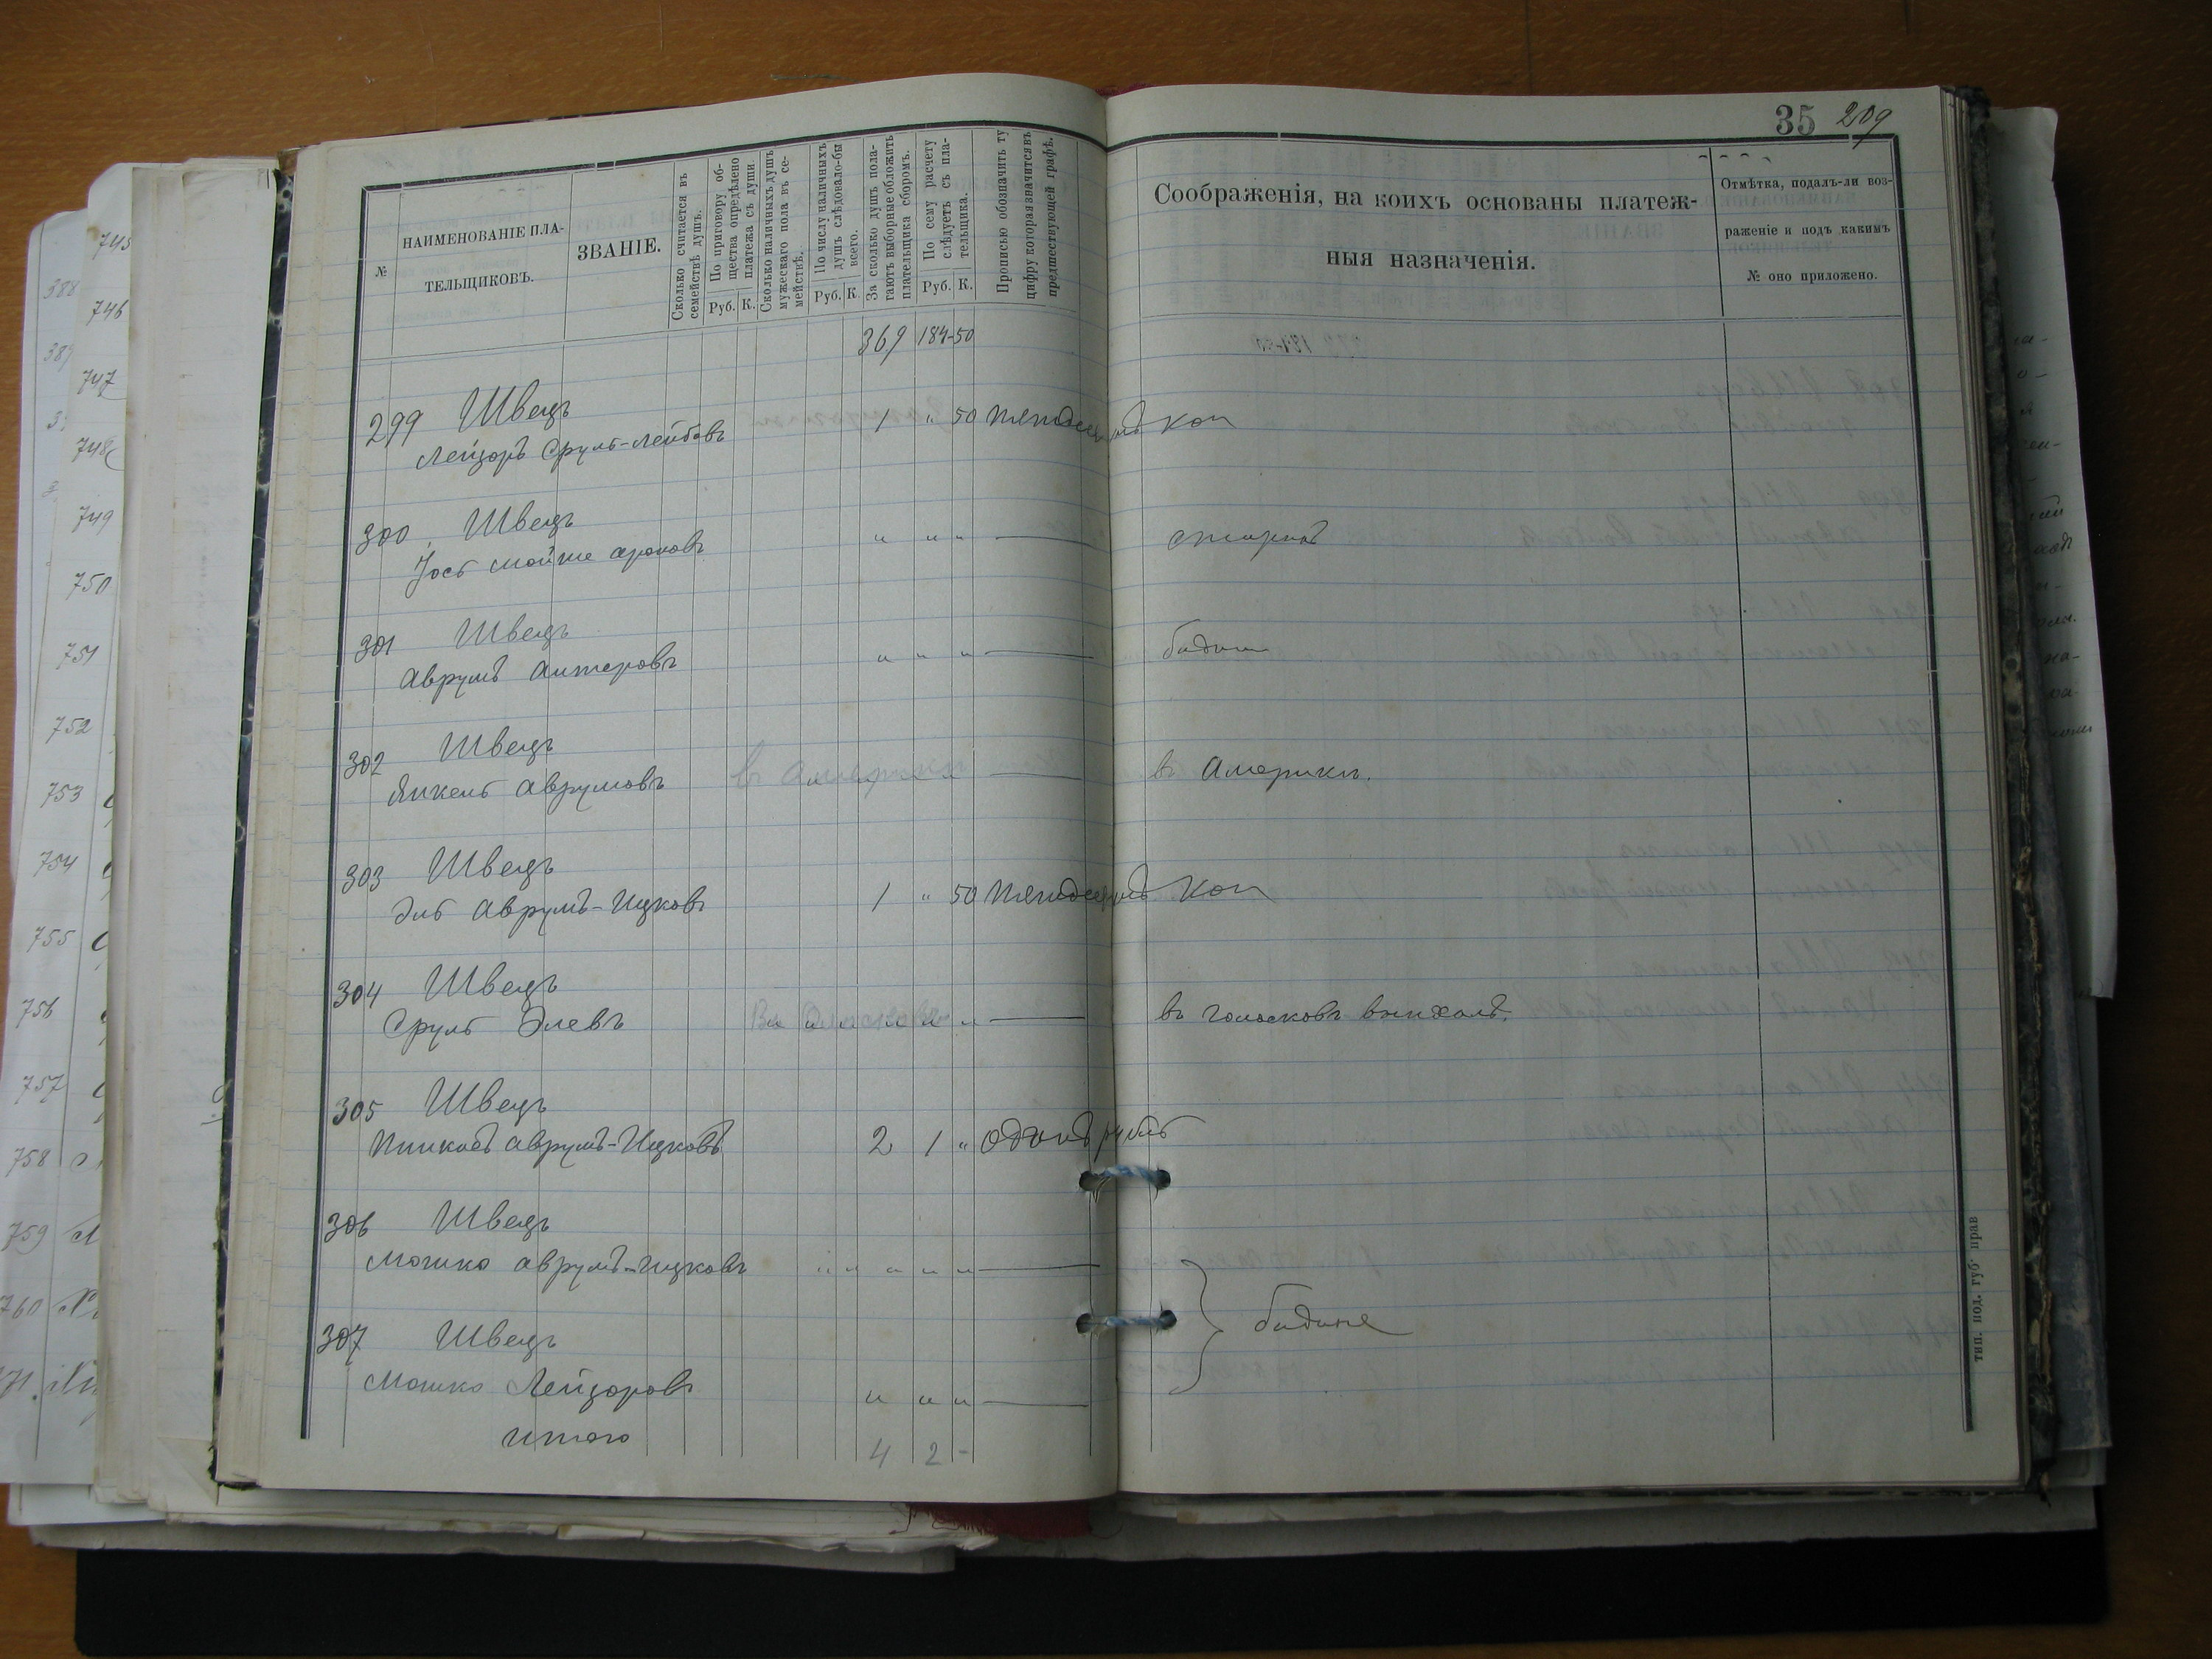 35 209
№
НАИМЕНОВАНІЕ ПЛА-
ТЕЛЬЩИКОВЪ.
ЗВАНІЕ.
Сколько считается въ
семействѣ душъ.
По приговору об-
щества опредѣлено
платежа съ души.
Руб. К.
Сколько наличныхъ душъ
мужескаго пола въ се-
мействѣ.
По числу наличныхъ
душъ слѣдовало-бы
всего.
Руб. К.
За сколько душъ пола-
гаютъ выборные обложить
плательщика сборомъ.
По сему расчету
слѣдуетъ съ пла-
тельщика.
Руб. К.
Прописью обозначить ту
цифру которая значится въ
предшествующей графѣ.
Соображенія, на коихъ основаны платеж-
ныя назначенія.
Отмѣтка, подалъ-ли воз-
раженіе и подъ какимъ
№ оно приложено.
369 184-50
299 Швецъ
Лейзоръ Сруль-Лейбовъ 1 " 50 пятдесятъ коп
300 Швецъ
Мойше " " "
301 Швецъ
Аврумъ " " "
302 Швецъ
Янкель Аврумовъ въ Америки " въ Америки.
303 Швецъ
Эль Аврумъ-Ицковъ 1 " 50 пятдесятъ коп
304 Швецъ
Сруль Элевъ " " " " " въ выехалъ.
305 Швецъ
Пинкасъ Аврумъ-Ицковъ 2 1 " одинъ рубль
306 Швецъ
Мошко Аврумъ-Ицковъ " " " " "
307 Швецъ бѣдные
Мошко Лейзоровъ " " "
итого 4 2 -
тип. под. губ. прав
745
746
747
748
749
750
751
752
753
754
755
756
757
758
759
760
388
389